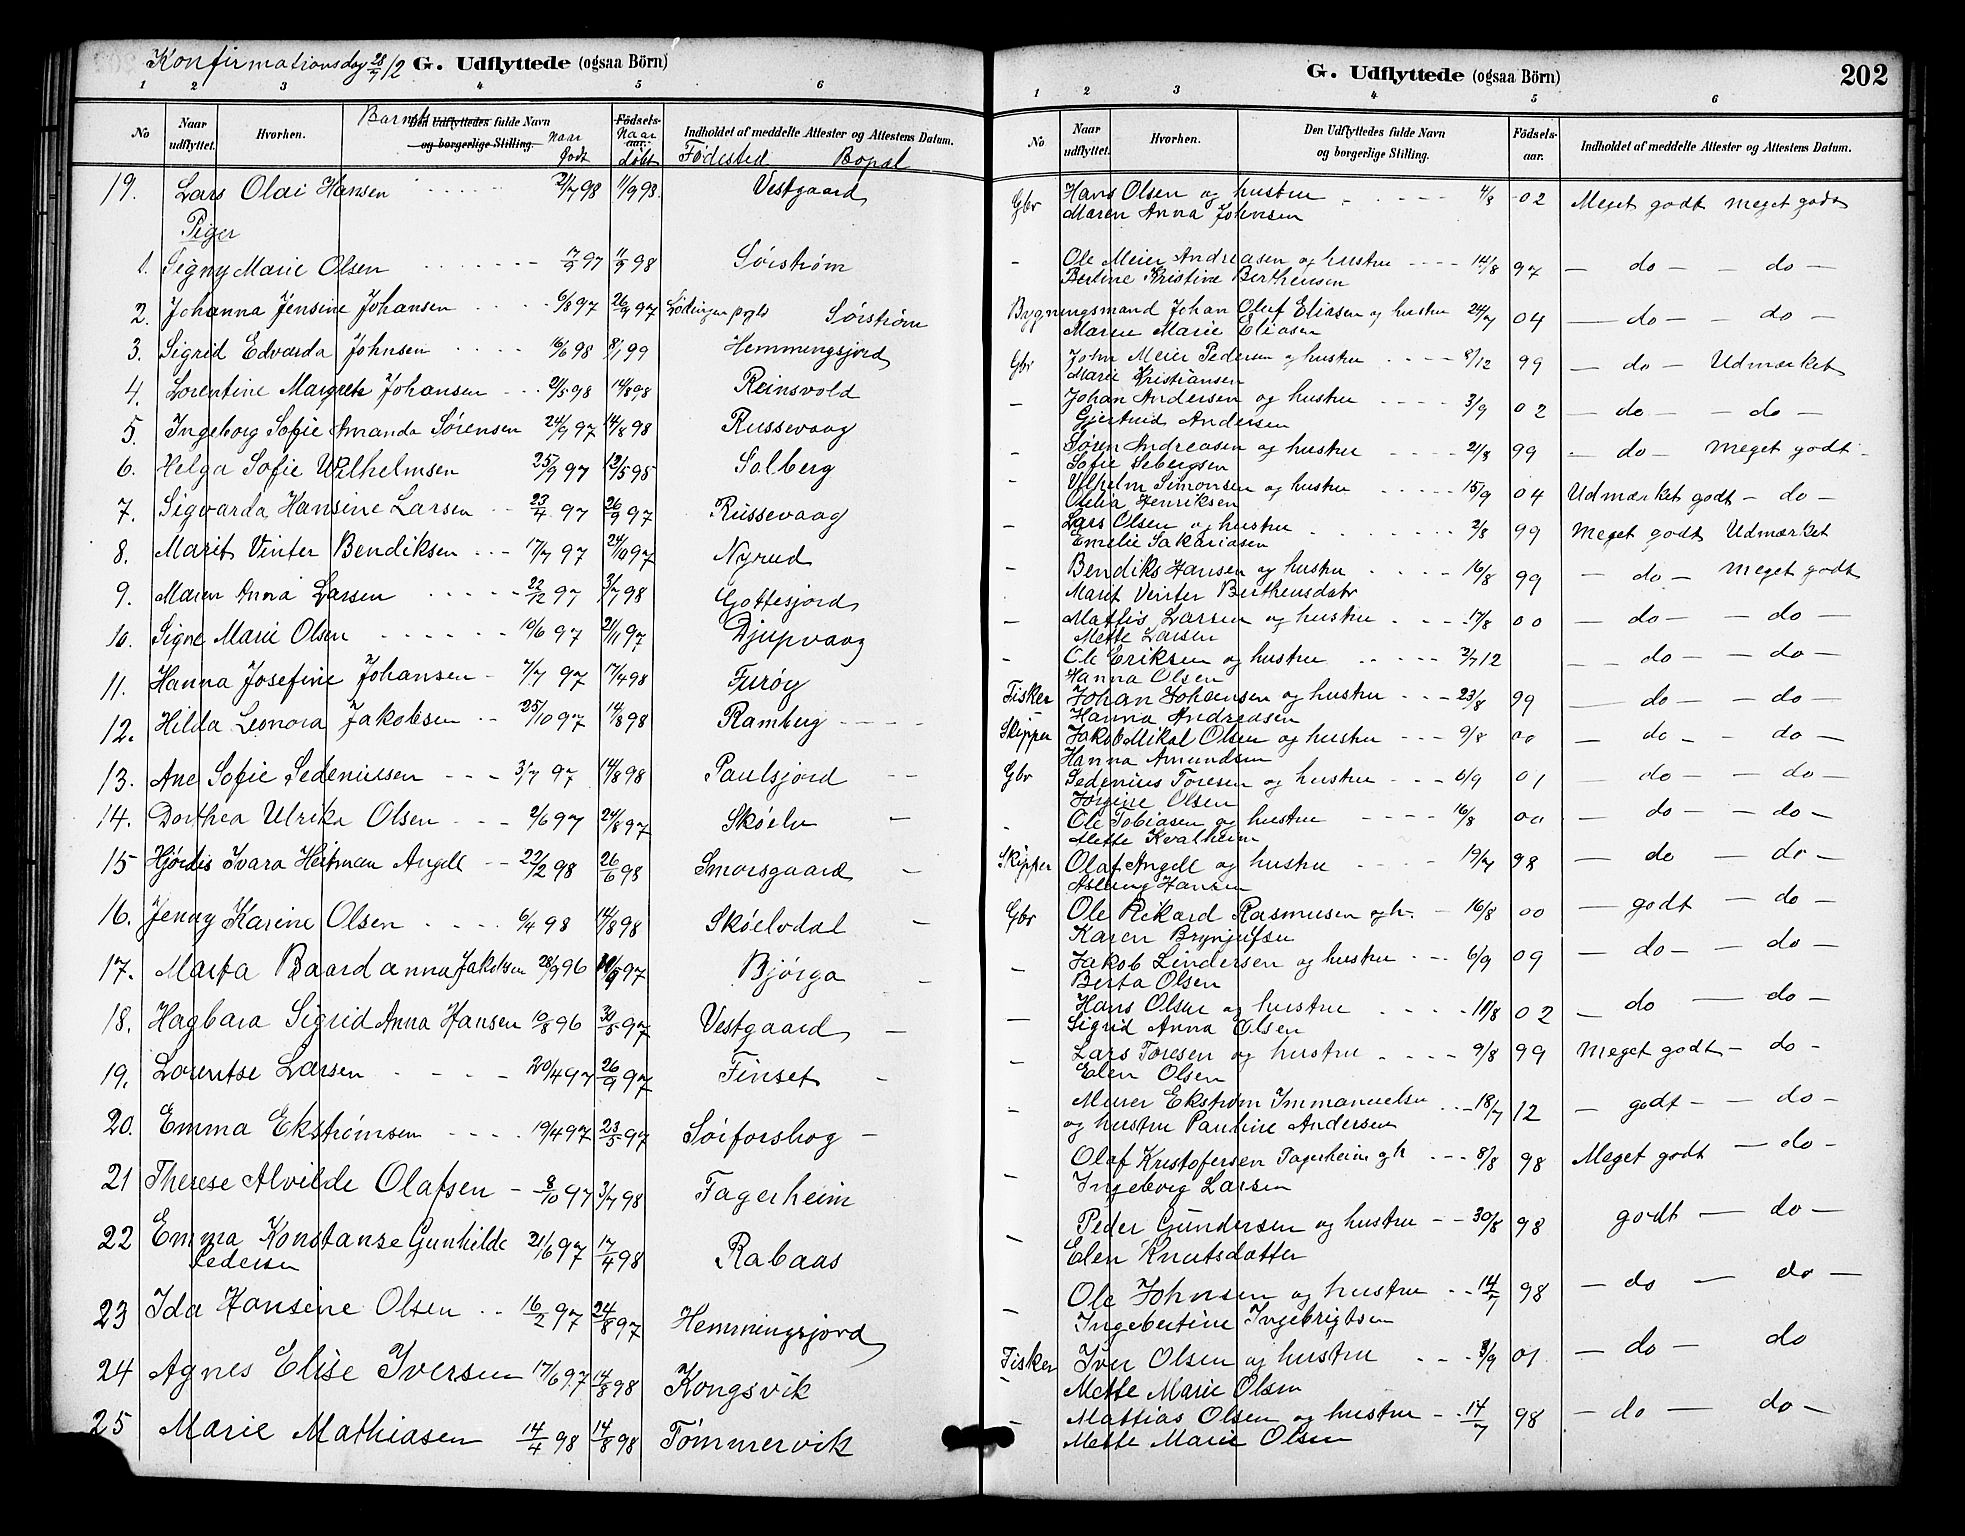 Konfirmationsdag 28/7 12 G. Udflyttede (ogsaa Börn)
1 2 3 4 5 6
No
Naar udflyttet.
Hvorhen.
Barnets
Den Udflyttedes fulde Navn
og borgerlige Stilling.
Naar födt
Födsels-aar.
Naar döbt
Indholdet af meddelte Attester og Attestens Datum.
Fødested Bopæl
19. Lars Olai Hansen 2/7 98 11/9 98. Vestgaard
Piger
1. Signy Marie Olsen 17/9 97 11/9 98 Sørstrøm
2. Johanna Jensine Johansen 6/8 97 26/9 97 Lødingen pgld Sørstrøm
3. Sigrid Edvarda Johnsen 16/6 98 8/1 99 Hemmingsjord
4. Lorentine Margrete Johansen 2/5 98 14/8 98 Reinsvold
5. Ingeborg Sofie Amanda Sørensen 24/9 97 14/8 98 Russevaag
6. Helga Sofie Wilhelmsen 25/9 97 12/5 98 Solberg
7. Sigvarda Hansine Larsen 23/4 97 26/9 97 Russevaag
8. Marit Vinter Bendiksen 17/7 97 24/10 97 Nyrud
9. Maren Anna Larsen 22/12 97 3/7 98 Gottesjord
10. Signe Marie Olsen 10/6 97 21/11 97 Djupvaag
11. Hanna Josefine Johansen 7/7 97 17/4 98 Furøy
12. Hilda Leonora Jakobsen 25/10 97 14/8 98 Ramberg
13. Ane Sofie Sedeniussen 3/7 97 14/8 98 Paulsjord
14. Dorthea Ulrika Olsen 2/6 97 24/8 97 Skøelv
15 Hjørdis Ivara Heitman Angell 22/2 98 26/6 98 Smorsgaard
16. Jenny Karine Olsen 6/4 98 14/8 98 Skøelvdal
17. Marta Baardanna Jakobsen 28/9 96 97 Bjørga
18. Hagbara Sigrid Anna Hansen 10/8 96 30/5 97 Vestgaard
19. Lorentse Larsen 20/4 97 26/9 97 Finset
20. Emma Ekstrømsen 19/4 97 23/5 97 Sørforsbog
21 Therese Alvilde Olafsen 8/10 97 3/7 98 Fagerheim
22 Emma Konstanse Gunhilde 21/6 97 17/4 98 Rabaas
Pedersen
23 Ida Hansine Olsen 16/2 97 24/8 97 Hemmingsjord
24 Agnes Elise Iversen 17/6 97 14/8 98 Kongsvik
25 Marie Mathiasen 14/4 98 14/8 98 Tømmervik
G. Udflyttede (ogsaa Börn) 202
1 2 3 4 5 6
No
Naar udflyttet.
Hvorhen.
Den Udflyttedes fulde Navn
og borgerlige Stilling.
Födsels-aar.
Indholdet af meddelte Attester og Attestens Datum.
Gbr Hans Olsen og hustru 4/8 02 Meget godt meget godt
Maren Anna Johnsen
- Ole Meier Andreasen og hustru 14/8 97 — do — — do —
Berline Kristine Berthensen
Bygningsmand Johan Oluf Eliasen og hustru 24/7 04 — do — — do —
Maren Marie Eliasen
Gbr John Meier Pedersen og hustru 8/12 99 — do — Udmærket
Marie Kristiansen
- Johan Andersen og hustru 3/9 02 — do — — do —
Gjertrud Andersen
- Søren Andreasen og hustru 2/8 99 — do — meget godt
Sofie Sebergsen
- Vilhelm Simonsen og hustru 15/9 04 Udmærket godt — do —
Odelia Henriksen
- Lars Olsen og hustru 2/8 99 Meget godt Udmærket
Emelie Sakariasen
- Bendiks Hansen og hustru 16/8 99 — do — meget godt
Marit Vinter Berthensdatr
- Mathis Larsen og hustru 17/8 00 — do — — do —
Mette Larsen
- Ole Eriksen og hustru 2/7 12 — do — — do —
Hanna Olsen
Fisker Johan Johansen og hustru 23/8 99 — do — — do —
Hanna Andreasen
Skipper Jakob Mikal Olsen og hustru 9/8 00 — do — — do —
Hanna Amundsen
Gbr Sedenius Toresen og hustru 6/9 01 — do — — do —
Jørgine Olsen
- Ole Tobiasen og hustru 16/8 00 — do — — do —
Mette Kvalheim
Skipper Olaf Angell og hustru 19/7 98 — do — do —
Aslaug Hansen
Gbr Ole Rikard Rasmusen og h. 16/8 00 — godt — do —
Karen Brynjulfsen
- Jakob Lindersen og hustru 6/9 09 — do — — do —
Berta Olsen
- Hans Olsen og hustru 11/8 02 — do — do —
Sigrid Anna Olsen
- Lars Toresen og hustru 9/8 99 Meget godt — do —
Elen Olsen
- Murer Ekstrøm Immanuelsen 18/7 12 — godt — — do —
og hustru Pauline Andersen
- Olaf Kristofersen Fagerheim og h 8/8 98 Meget godt — do —
Ingeborg Larsen
- Peder Gundersen og hustru 30/8 98 godt — do —
Elen Knutsdatter
- Ole Johnsen og hustru 14/7 98 — do — do —
Ingebertine Ingebrigtsen
Fisker Iver Olsen og hustru 3/9 01 — do — do
Mette Marie Olsen
- Mattias Olsen og hustru 14/7 98 — do — do —
Mette Marie Olsen